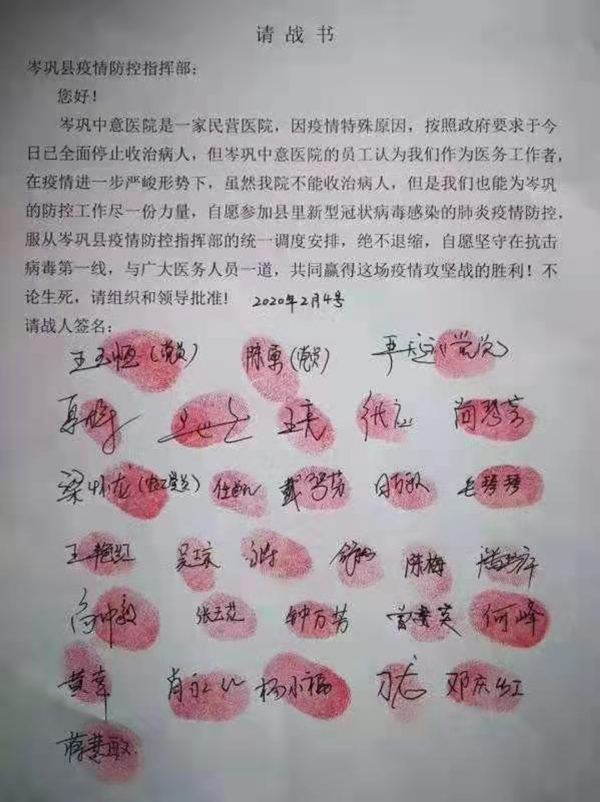 请战书
岑巩县疫情防控指挥部：
您好！
岑巩中意医院是一家民营医院，因疫情特殊原因，按照政府要求于今
日已全面停止收治病人，但岑巩中意医院的员工认为我们作为医务工作者，
在疫情进一步严峻形势下，虽然我院不能收治病人，但是我们也能为岑巩
的防控工作尽一份力量，自愿参加县里新型冠状病毒感染的肺炎疫情防控，
服从岑巩县疫情防控指挥部的统一调度安排，绝不退缩，自愿坚守在抗击
病毒第一线，与广大医务人员一道，共同赢得这场疫情攻坚战的胜利！不
论生死，请组织和领导批准！ 2020年2月4号
请战人签名：
王玉恒（党员） 陈勇（党员） （党员）
王亮
梁怀龙 戴 芳 毛琴琴
王艳红 吴琼 陈梅
张玉花 钟万芳 何峰
黄幸 杨小福 邓庆红
蒋慧敏